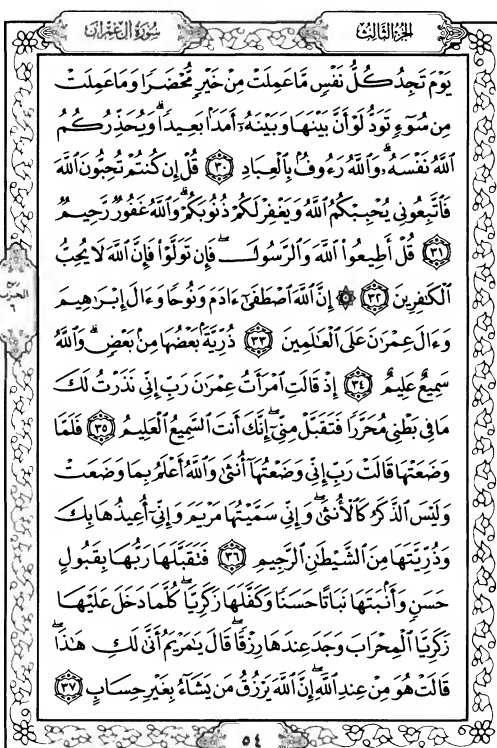 سُورَةُ آلِ عِمْرَانَ
الجُزْءُ الثَّالِثُ
يَوْمَ تَجِدُ كُلُّ نَفْسٍ مَّا عَمِلَتْ مِنْ خَيْرٍ مُّحْضَرًا وَمَا عَمِلَتْ
مِن سُوٓءٍ تَوَدُّ لَوْ أَنَّ بَيْنَهَا وَبَيْنَهُۥٓ أَمَدًۢا بَعِيدًا ۗ وَيُحَذِّرُكُمُ
ٱللَّهُ نَفْسَهُۥ ۗ وَٱللَّهُ رَءُوفٌۢ بِٱلْعِبَادِ ۝٣٠ قُلْ إِن كُنتُمْ تُحِبُّونَ ٱللَّهَ
فَٱتَّبِعُونِى يُحْبِبْكُمُ ٱللَّهُ وَيَغْفِرْ لَكُمْ ذُنُوبَكُمْ ۗ وَٱللَّهُ غَفُورٌ رَّحِيمٌ
۝٣١ قُلْ أَطِيعُوا۟ ٱللَّهَ وَٱلرَّسُولَ ۖ فَإِن تَوَلَّوْا۟ فَإِنَّ ٱللَّهَ لَا يُحِبُّ
ٱلْكَٰفِرِينَ ۝٣٢ ۞ إِنَّ ٱللَّهَ ٱصْطَفَىٰٓ ءَادَمَ وَنُوحًا وَءَالَ إِبْرَٰهِيمَ
وَءَالَ عِمْرَٰنَ عَلَى ٱلْعَٰلَمِينَ ۝٣٣ ذُرِّيَّةًۢ بَعْضُهَا مِنۢ بَعْضٍ ۗ وَٱللَّهُ
سَمِيعٌ عَلِيمٌ ۝٣٤ إِذْ قَالَتِ ٱمْرَأَتُ عِمْرَٰنَ رَبِّ إِنِّى نَذَرْتُ لَكَ
مَا فِى بَطْنِى مُحَرَّرًا فَتَقَبَّلْ مِنِّىٓ ۖ إِنَّكَ أَنتَ ٱلسَّمِيعُ ٱلْعَلِيمُ ۝٣٥ فَلَمَّا
وَضَعَتْهَا قَالَتْ رَبِّ إِنِّى وَضَعْتُهَآ أُنثَىٰ وَٱللَّهُ أَعْلَمُ بِمَا وَضَعَتْ
وَلَيْسَ ٱلذَّكَرُ كَٱلْأُنثَىٰ ۖ وَإِنِّى سَمَّيْتُهَا مَرْيَمَ وَإِنِّىٓ أُعِيذُهَا بِكَ
وَذُرِّيَّتَهَا مِنَ ٱلشَّيْطَٰنِ ٱلرَّجِيمِ ۝٣٦ فَتَقَبَّلَهَا رَبُّهَا بِقَبُولٍ
حَسَنٍ وَأَنۢبَتَهَا نَبَاتًا حَسَنًا وَكَفَّلَهَا زَكَرِيَّا ۖ كُلَّمَا دَخَلَ عَلَيْهَا
زَكَرِيَّا ٱلْمِحْرَابَ وَجَدَ عِندَهَا رِزْقًا ۖ قَالَ يَٰمَرْيَمُ أَنَّىٰ لَكِ هَٰذَا ۖ
قَالَتْ هُوَ مِنْ عِندِ ٱللَّهِ ۖ إِنَّ ٱللَّهَ يَرْزُقُ مَن يَشَآءُ بِغَيْرِ حِسَابٍ ۝٣٧
ربع
الحزب
٦
٥٤